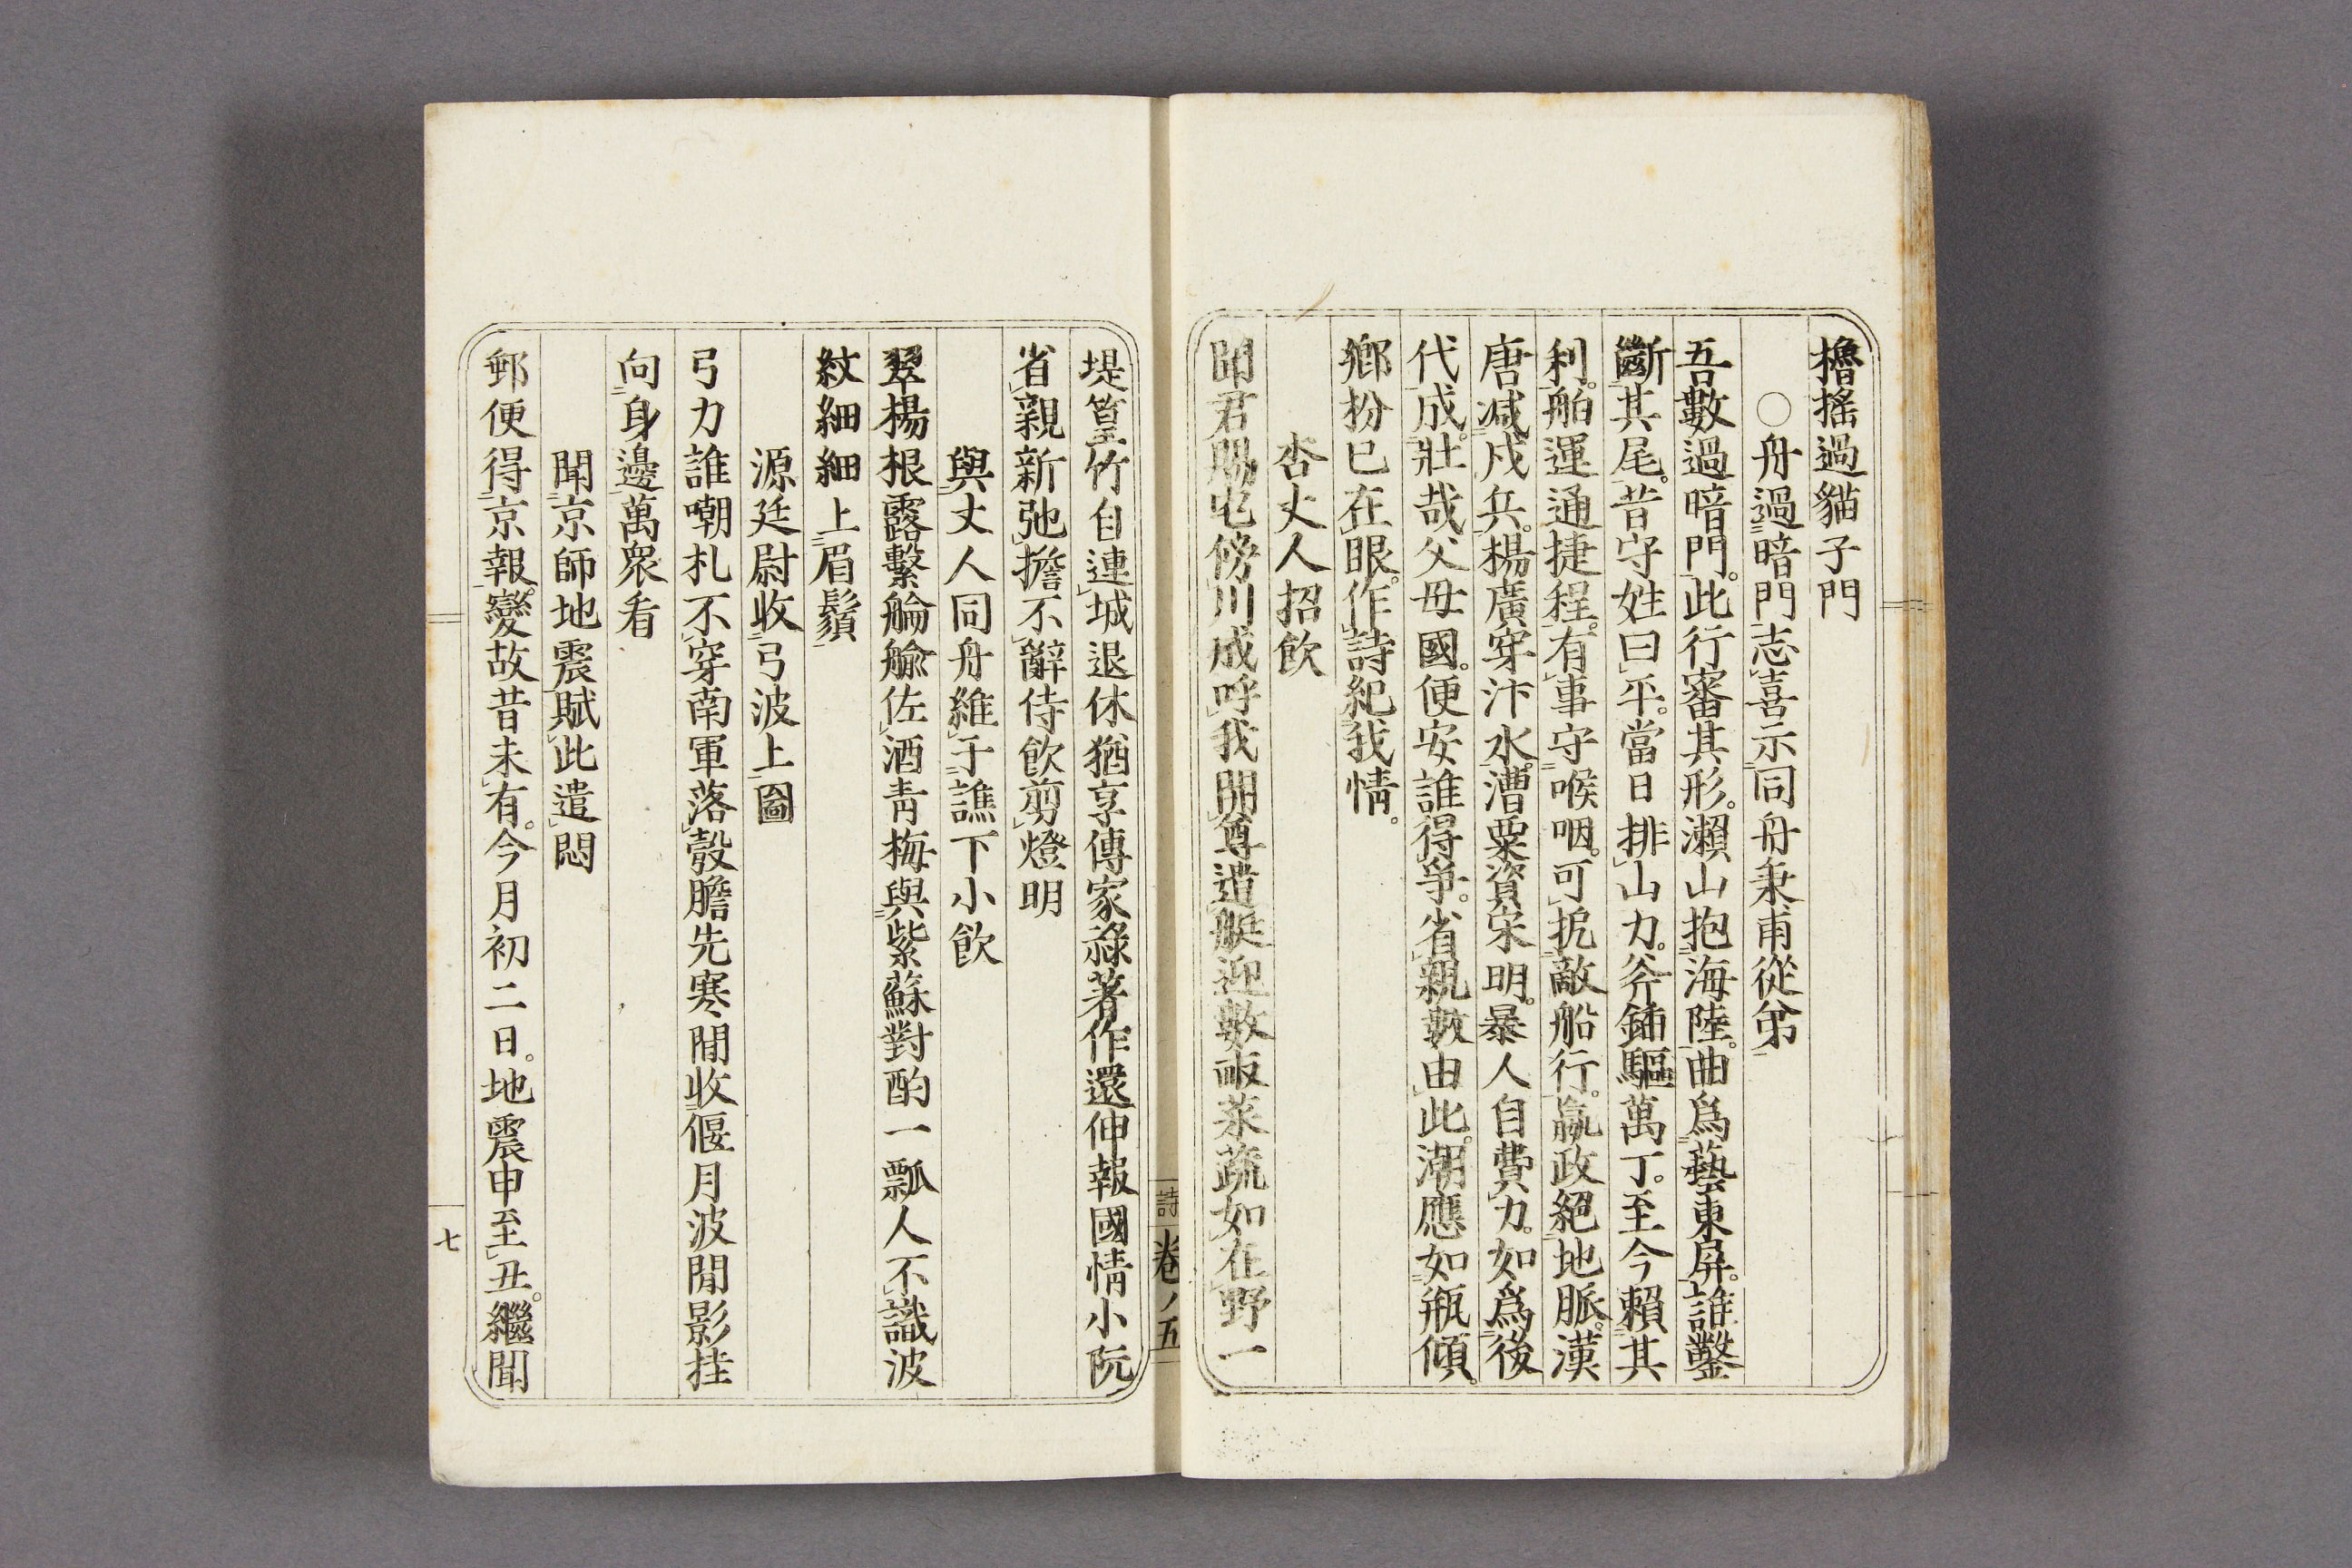 櫓搖過貓子門
○舟過暗門志喜示同舟秉甫從弟
吾數過暗門。此行審其形。瀨山抱海陸。曲爲藝東屏。誰鑿
斷其尾。昔守姓曰平。當日排山力。斧鍤驅萬丁。至今賴其
利。舶運通捷程。有事守喉咽。可扼敵船行。嬴政絕地脈。漢
唐減戍兵。楊廣穿汴水。漕粟資宋明。暴人自費力。如爲後
代成。壯哉父母國。便安誰得爭。省親數由此。潮應如瓶傾。
鄉枌已在眼。作詩紀我情。
杏丈人招飲
聞君賜宅傍川成呼我開尊遣艇迎數畝菜蔬如在野一
堤篁竹自連城退休猶享傳家祿著作還伸報國情小阮
省親新弛擔不辭侍飲剪燈明
與丈人同舟維于譙下小飲
翠楊根露繫艙艙佐酒青梅與紫蘇對酌一瓢人不識波
紋細細上眉鬚
源廷尉收弓波上圖
弓力誰嘲札不穿南軍落彀膽先寒閒收偃月波間影挂
向身邊萬衆看
聞京師地震賦此遣悶
郵便得京報。變故昔未有。今月初二日。地震申至丑。繼聞
詩 卷ノ五
七